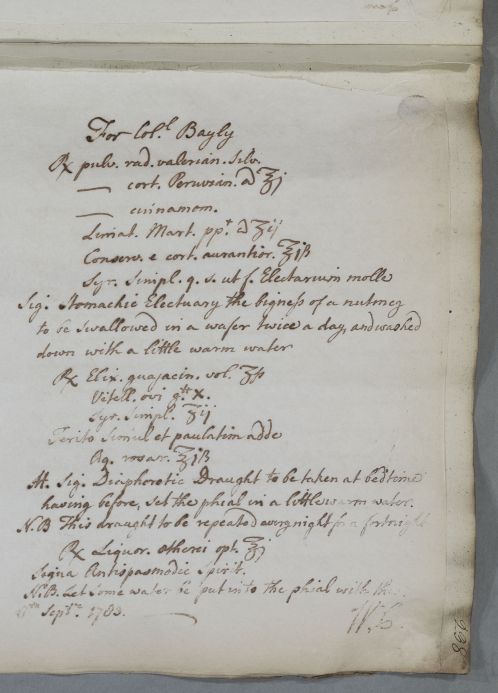 For Col.l Bayly
℞ pulv. rad. valerian. silv.
— cort. Peruvian. a ʒj
— cinnamom.
Limat. Mart. ppt. a ʒij
Conserv. e cort. aurantior. ʒjß
Syr. Simpl. q. s. ut f. Electarium molle
Sig. Stomachic Electuary the bigness of a nutmeg
to be swallowed in a wafer twice a day, and washed
down with a little warm water
℞ Elix. guajacin. vol. ʒß
Vitell. ovi gtt x.
Syr. Simpl. ʒij
Terito simul et paulatim adde
Aq. rosar. ʒjß
M. Sig. Diaphoretic Draught to be taken at bedtime
having before, set the phial in a little warm water.
N.B This draught to be repeated every night for a fortnight
℞ Liquor. etherei opt. ʒj
Signa Antispasmodic Spirit.
N.B. Let some water be put into the phial with the
Sept. 1783.
W.C.
338